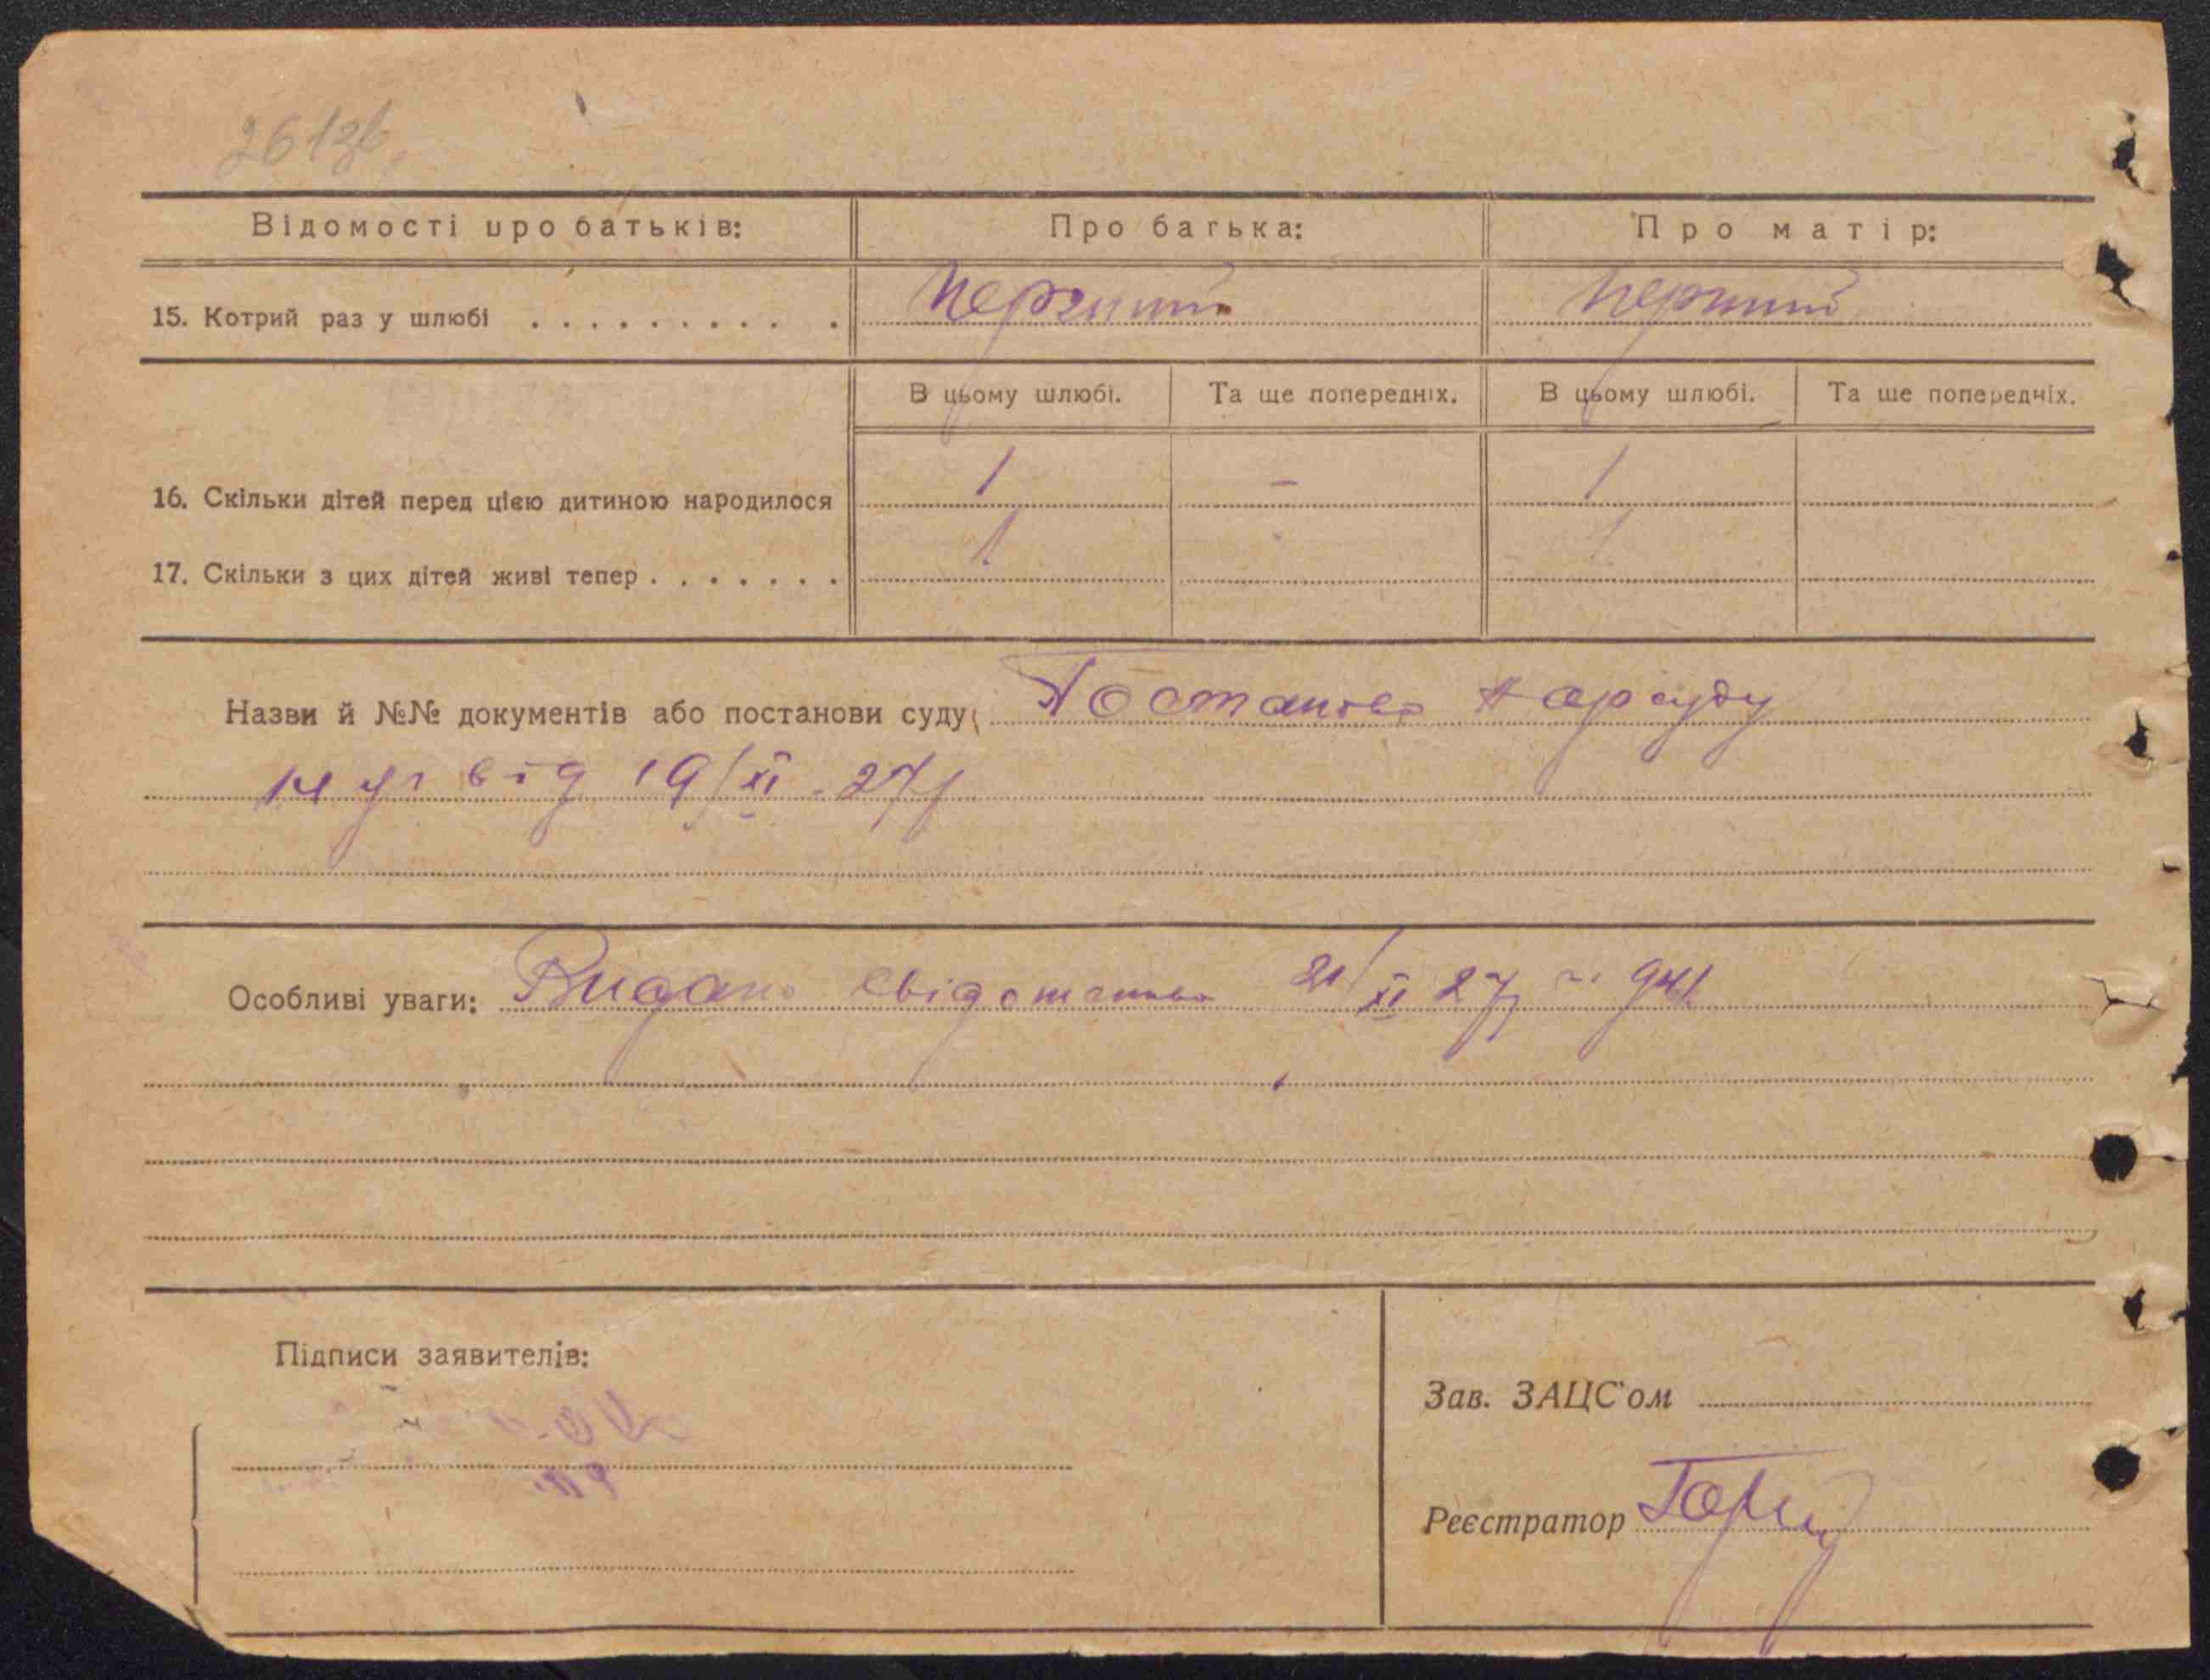 261зв.
Відомості про батьків: Про батька: Про матір:
15. Котрий раз у шлюбі . . . . . . . . . . перший перший
В цьому шлюбі. Та ще попередніх. В цьому шлюбі. Та ще попередніх.
16. Скільки дітей перед цією дитиною народилося 1 - 1
17. Скільки з цих дітей живі тепер . . . . . . . 1 1
Назви й №№ документів або постанови суду: Постанова Нарсуду
14 уч від 19/XI-27р
Особливі уваги: Видано свідоцтво 21/XI 27р 941
Підписи заявителів:
Зав. ЗАЦС'ом
Реєстратор